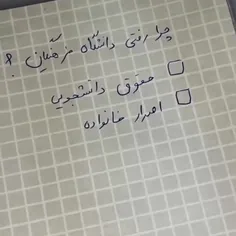 چرا رفتی دانشگاه فرهنگیان ؟
حقوق دانشجویی
اصرار خانواده